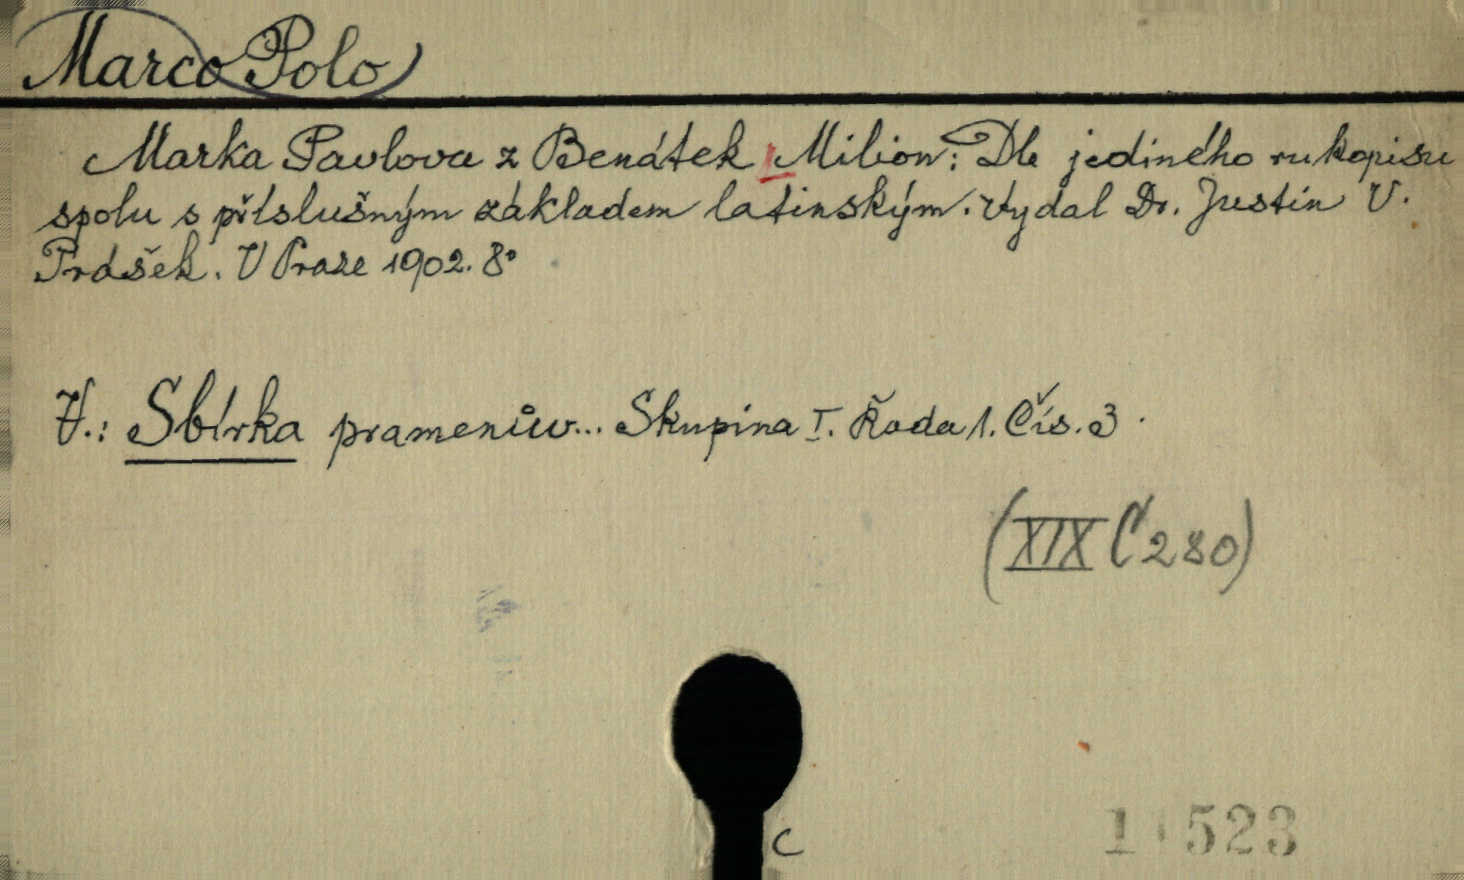 Marco Polo
Marka Pavlova z Benátek Milion: Dle jediného rukopisu
spolu s příslušným základem latinským. Vydal Dr. Justin V.
Prášek. V Praze 1902. 8°
V.: Sbírka pramenův... Skupina I. Řada 1. Čís. 3.
(XIX C 280)
C
1 523